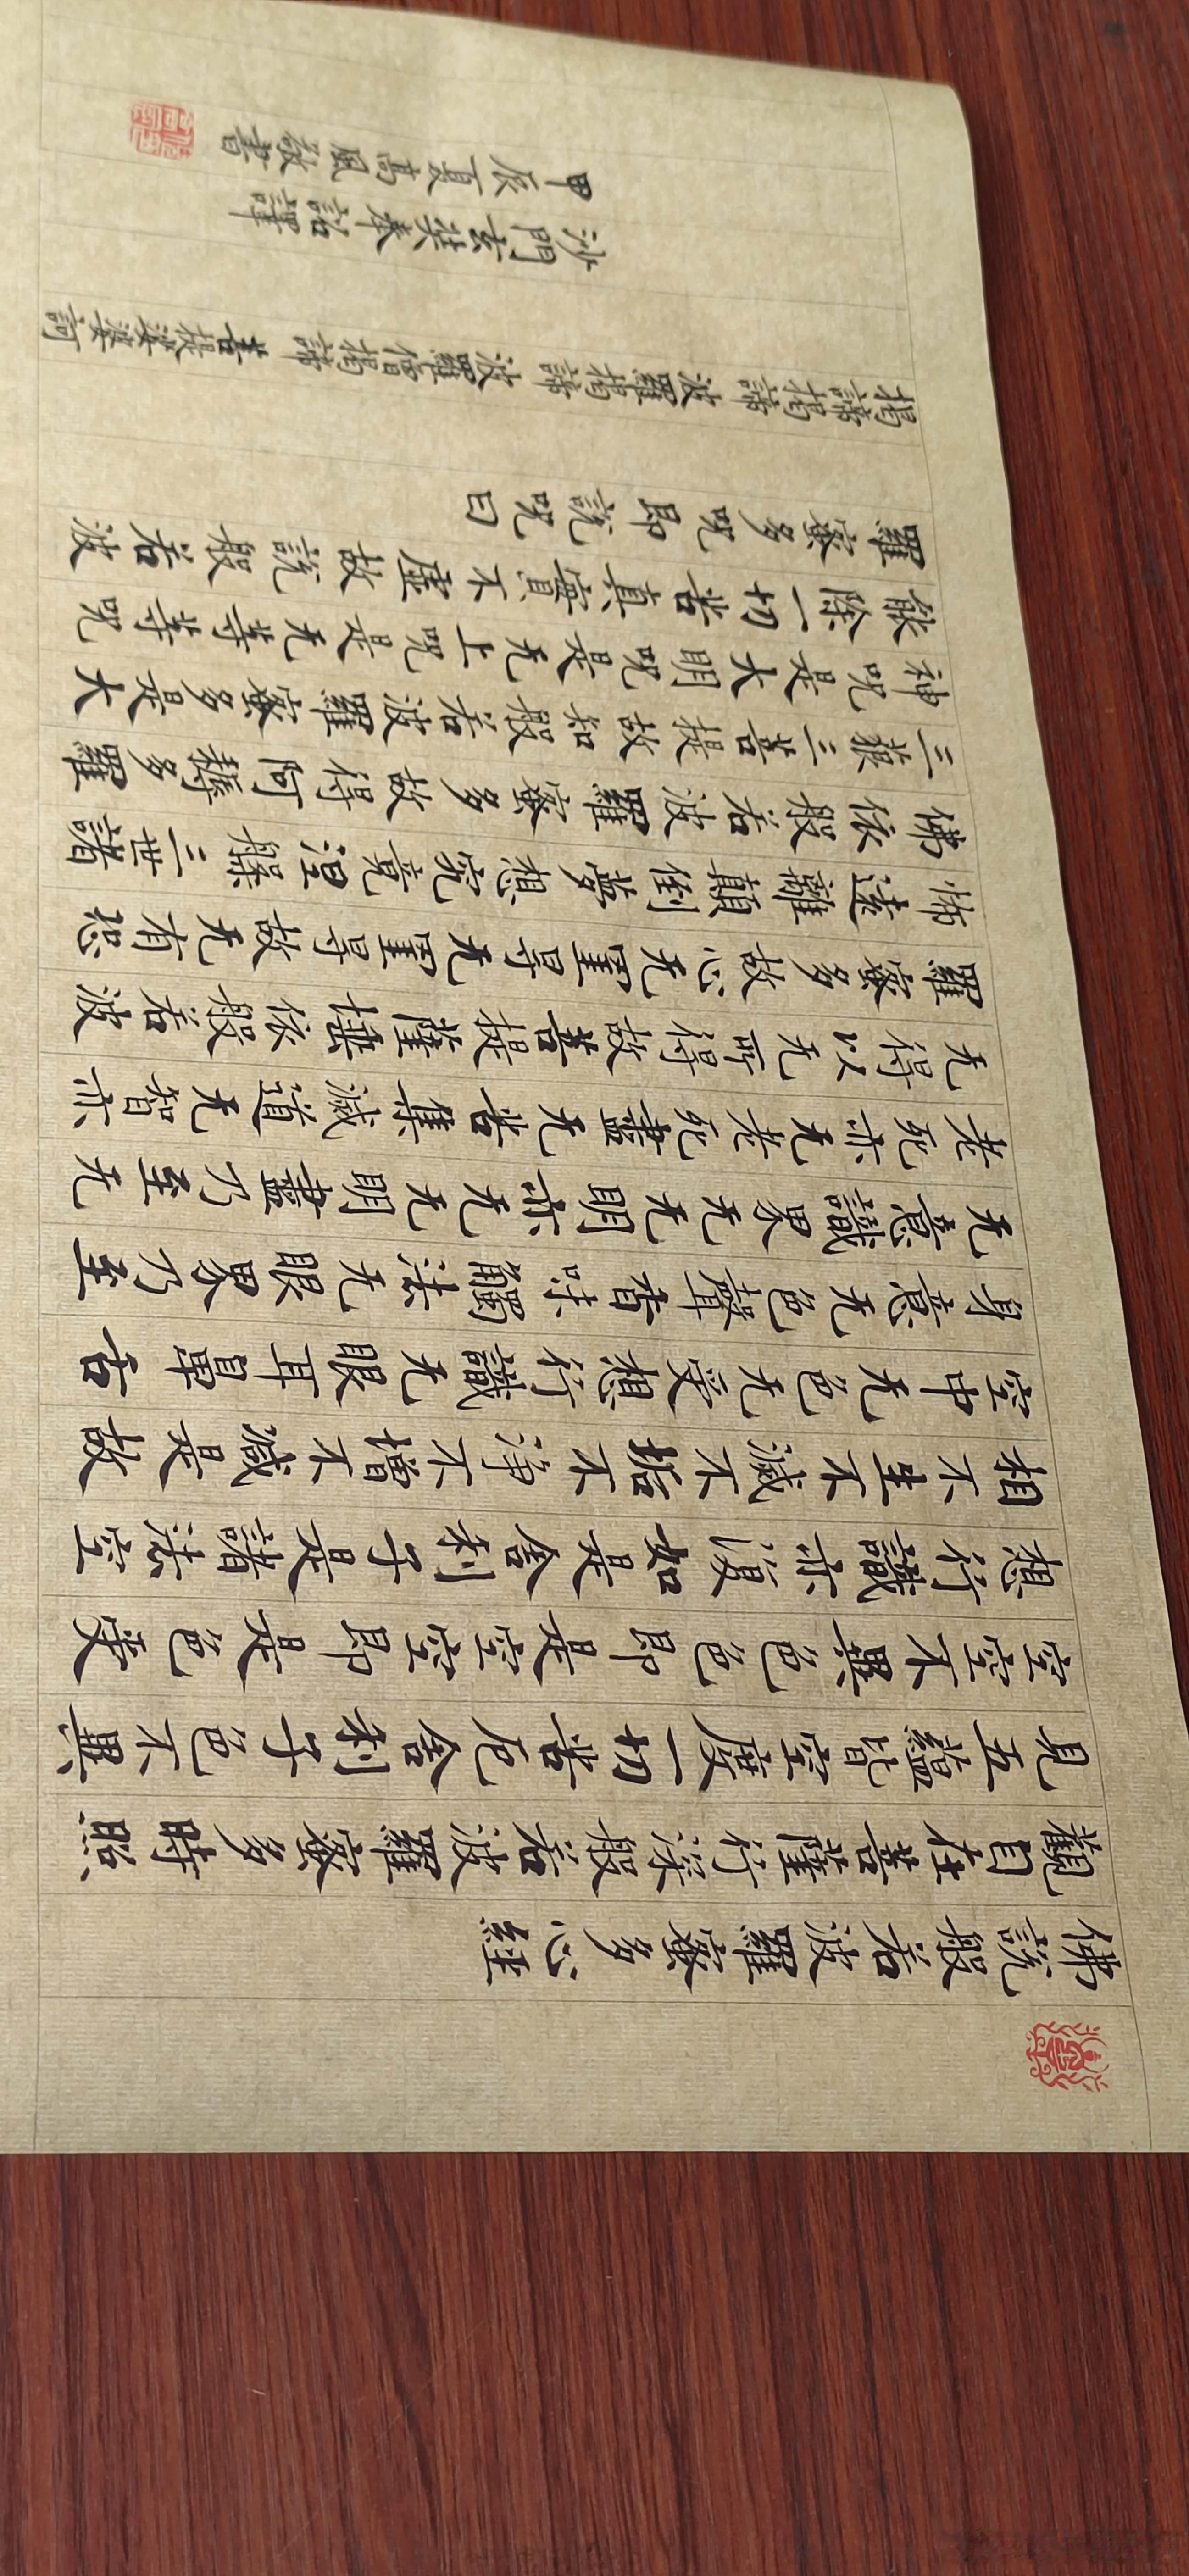 佛說般若波羅蜜多心經
觀自在菩薩行深般若波羅蜜多時照
見五蘊皆空度一切苦厄舍利子色不異
空空不異色色即是空空即是色受
想行識亦復如是舍利子是諸法空
相不生不滅不垢不淨不增不減是故
空中无色无受想行識无眼耳鼻舌
身意无色聲香味觸法无眼界乃至
无意識界无无明亦无无明盡乃至无
老死亦无老死盡无苦集滅道无智亦
无得以无所得故菩提薩埵依般若波
羅蜜多故心无罣㝵无罣㝵故无有恐
怖遠離顛倒夢想究竟涅槃三世諸
佛依般若波羅蜜多故得阿耨多羅
三藐三菩提故知般若波羅蜜多是大
神咒是大明咒是无上咒是无等等咒
能除一切苦真實不虛故說般若波
羅蜜多咒即說咒曰
揭諦揭諦 波羅揭諦 波羅僧揭諦 菩提娑婆訶
沙門玄奘奉詔譯
甲辰夏萬風敬書